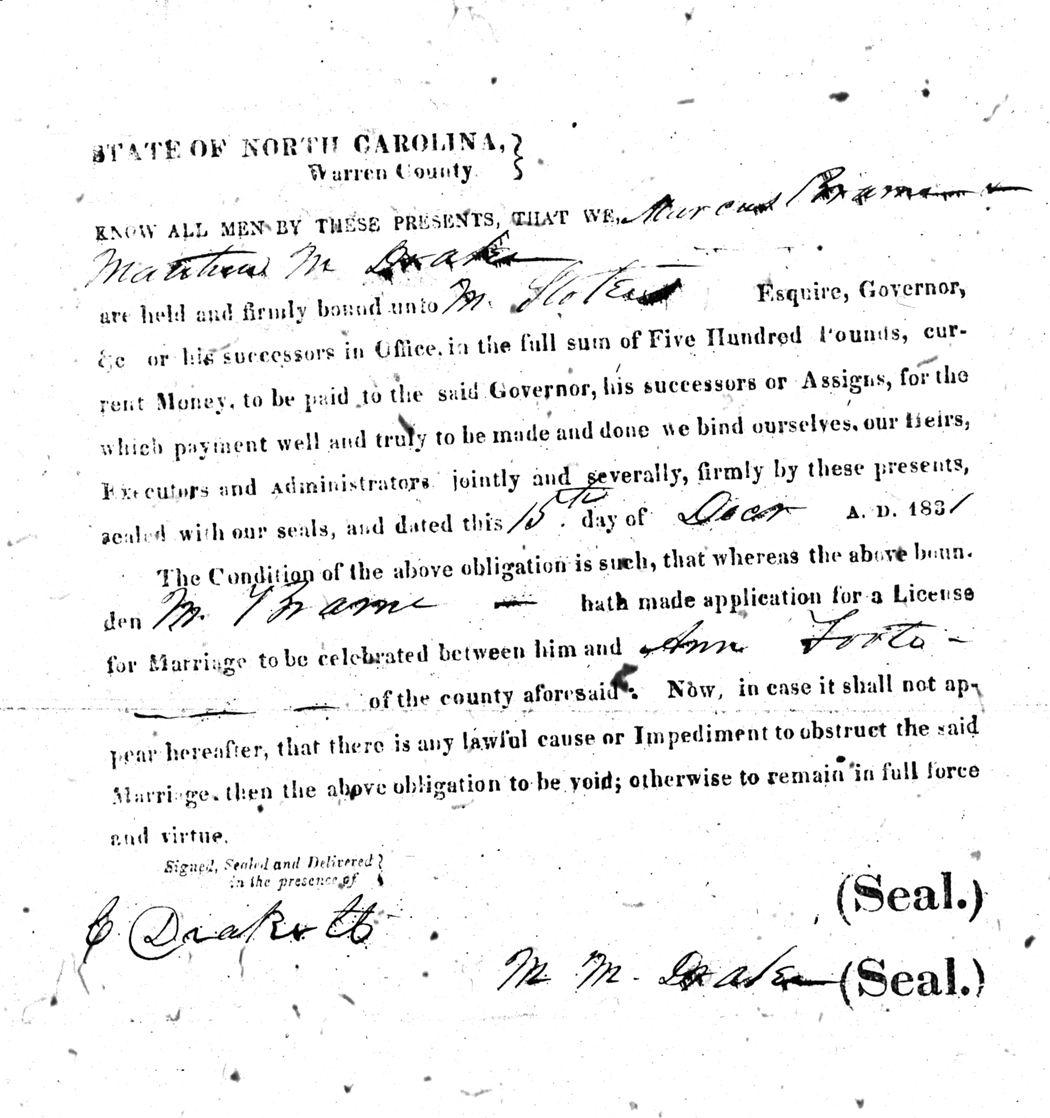 STATE OF NORTH CAROLINA,
Warren County.
KNOW ALL MEN BY THESE PRESENTS, THAT WE, Marcus Brame
Matthew M Drake
are held and firmly bound unto M. Stokes Esquire, Governor,
&c or his successors in Office, in the full sum of Five Hundred Pounds, cur-
rent Money, to be paid to the said Governor, his successors or Assigns, for the
which payment well and truly to be made and done we bind ourselves, our Heirs,
Executors and Administrators jointly and severally, firmly by these presents,
sealed with our seals, and dated this 15th. day of Decr A. D. 1831
The Condition of the above obligation is such, that whereas the above boun-
den M. Brame — hath made application for a License
for Marriage to be celebrated between him and Ann Forte -
— — of the county aforesaid: Now, in case it shall not ap-
pear hereafter, that there is any lawful cause or Impediment to obstruct the said
Marriage, then the above obligation to be void; otherwise to remain in full force
and virtue.
Signed, Sealed and Delivered
in the presence of
(Seal.)
C Drake
M M. Drake (Seal.)